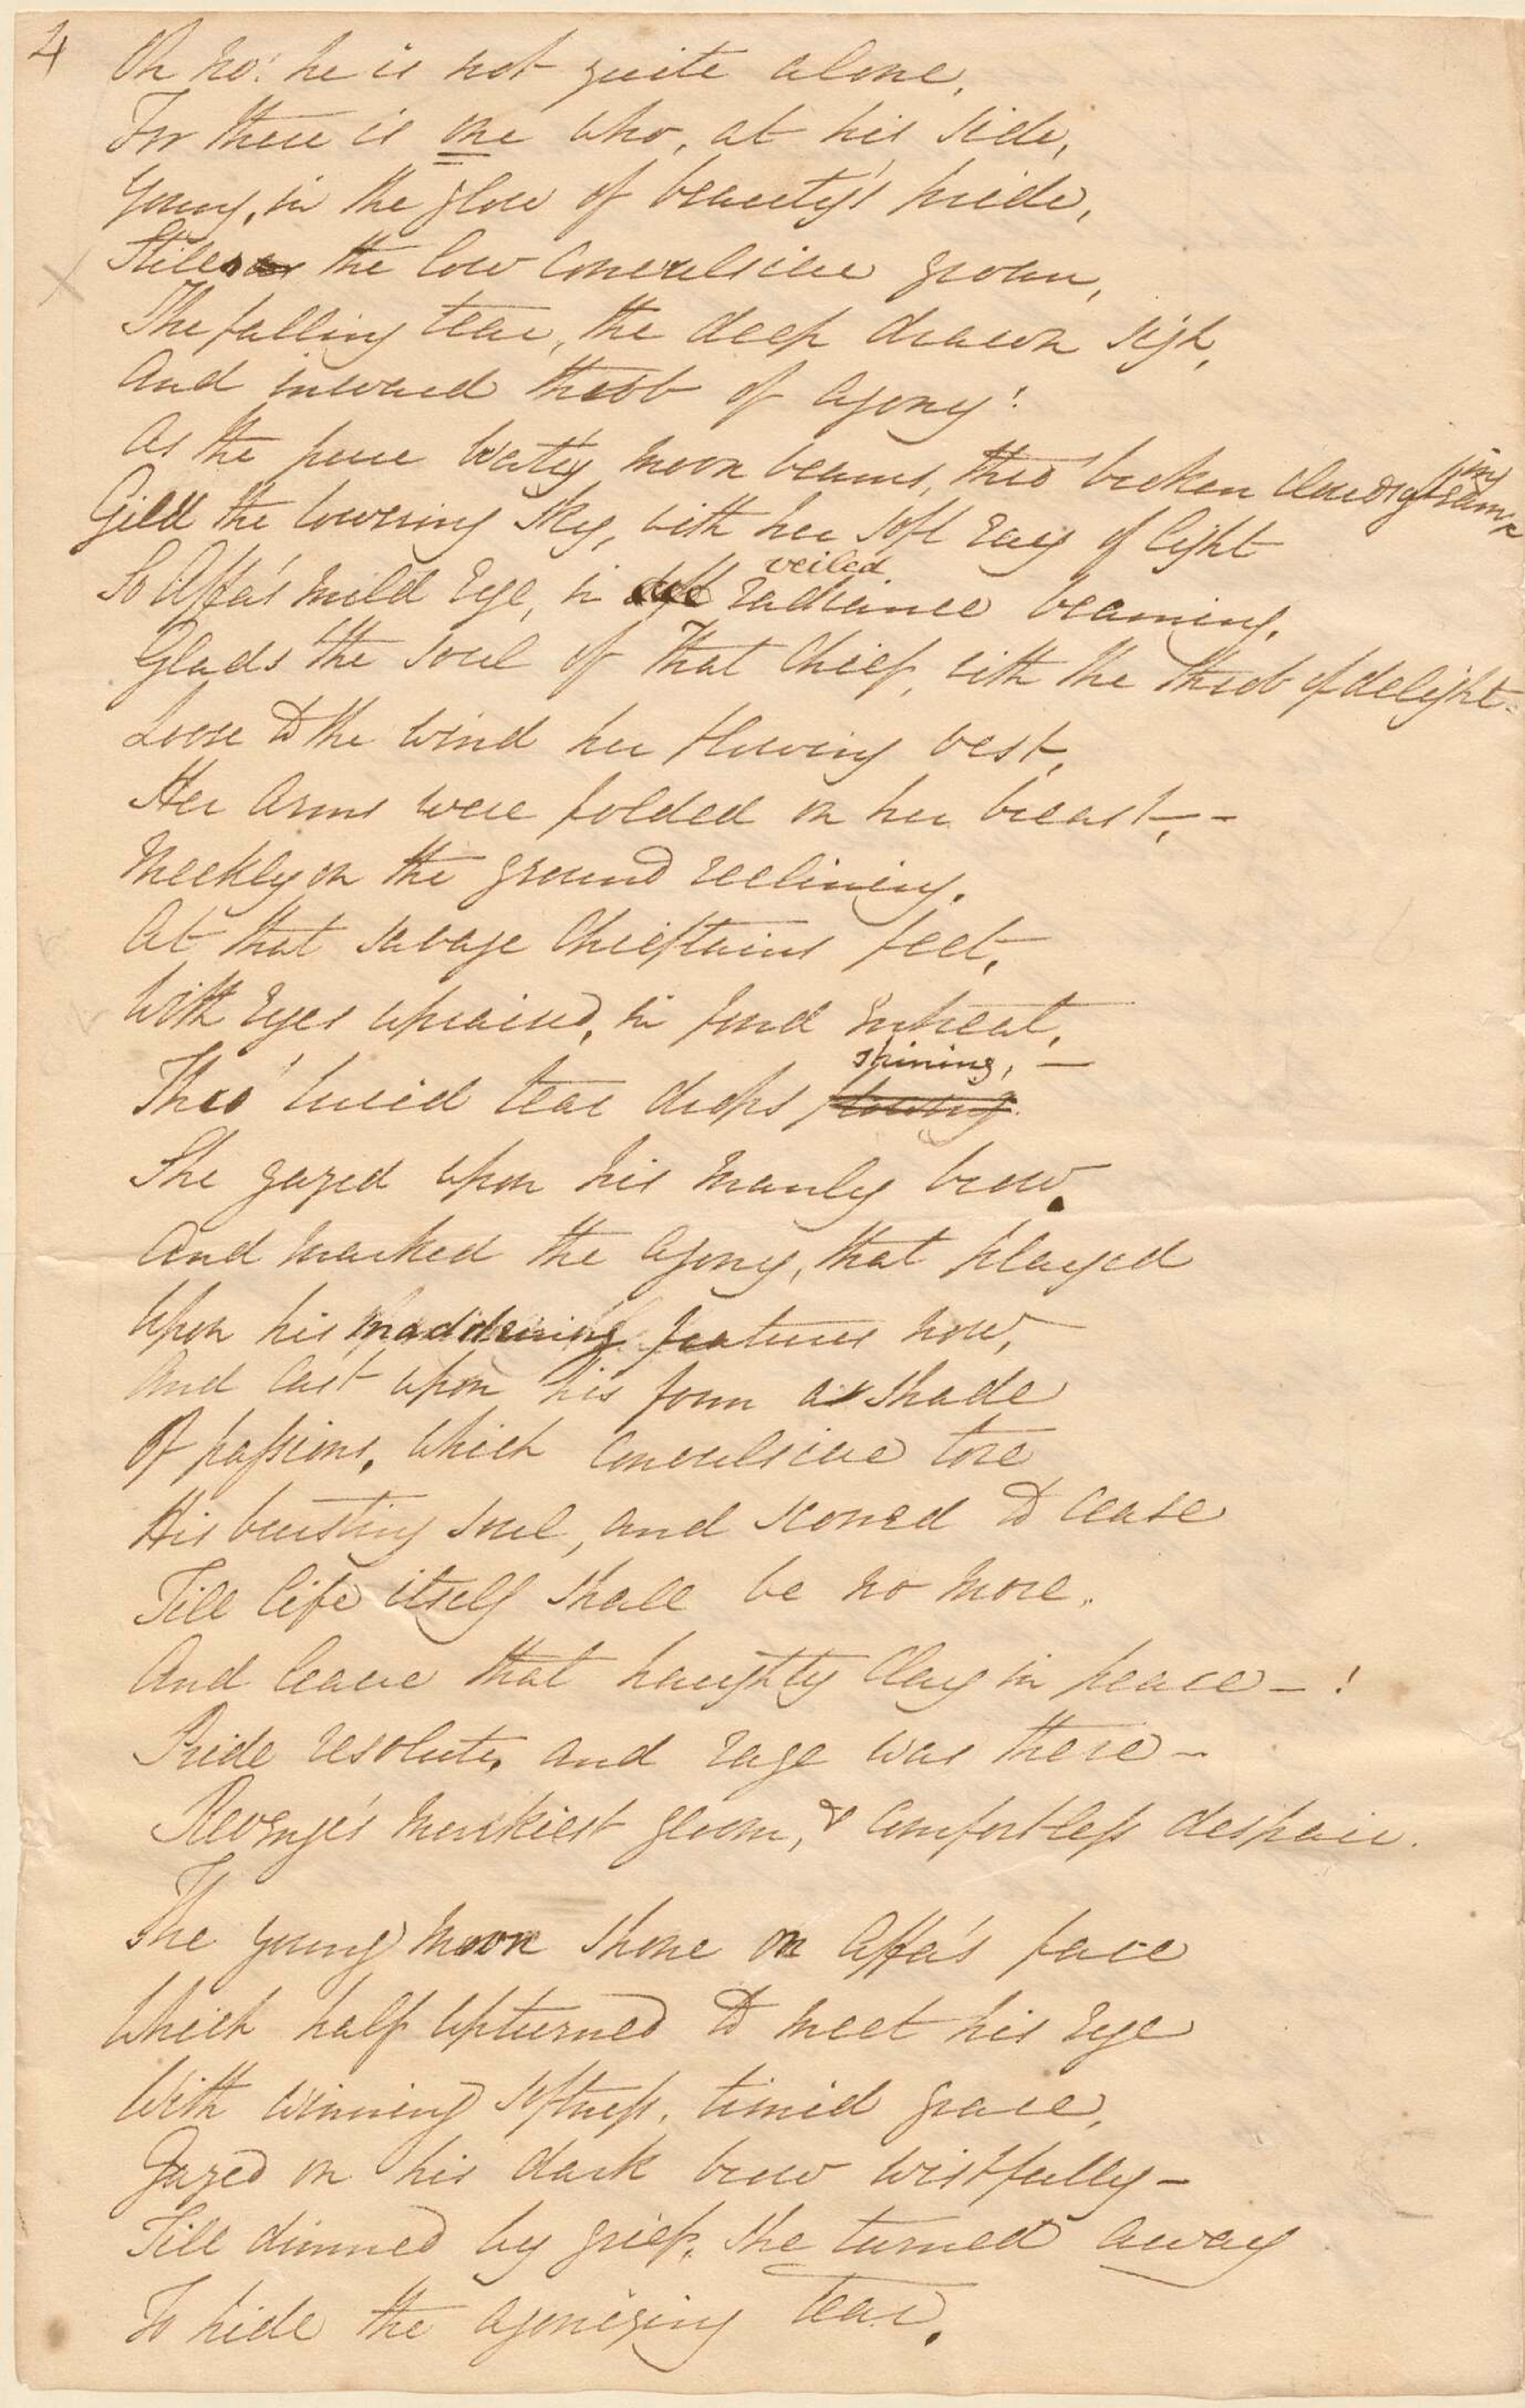 4
Oh no! he is not quite alone,
For there is one who, at his side,
Young, in the glow of beauty's pride,
the low convulsive groan,
The falling tear, the deep drawn sigh,
And inward throb of agony!
As the pure wat'ry moon beams, thro' broken clouds
Gild the lowering sky, with her soft ray of light
So Affa's mild Eye, in veiled radiance beaming,
Glads the soul of that Chief, with the throb of delight.
Loose to the wind her flowing vest,
Her arms were folded on her breast, -
Meekly on the ground reclining,
At that savage Chieftains feet,
With Eyes upraised, in fond entreat,
Thro' lucid tear drops flowing shining, -
She gazed upon his manly brow.
And marked the agony, that played
Upon his maddening features now,
And cast upon his form a shade
Of passions, which convulsive tore
His bursting soul, and scorned to cease
Till life itself shall be no more.
And leave that haughty Clay in peace - !
Pride resolute, and rage was there -
Revenge's murkiest gloom, & comfortless despair.
The young moon shone on Affa's face
Which half upturned to meet his Eye
With winning softness, timid grace,
Gazed on his dark brow wistfully -
Till dimmed by grief, she turned away
To hide the agonizing tear.